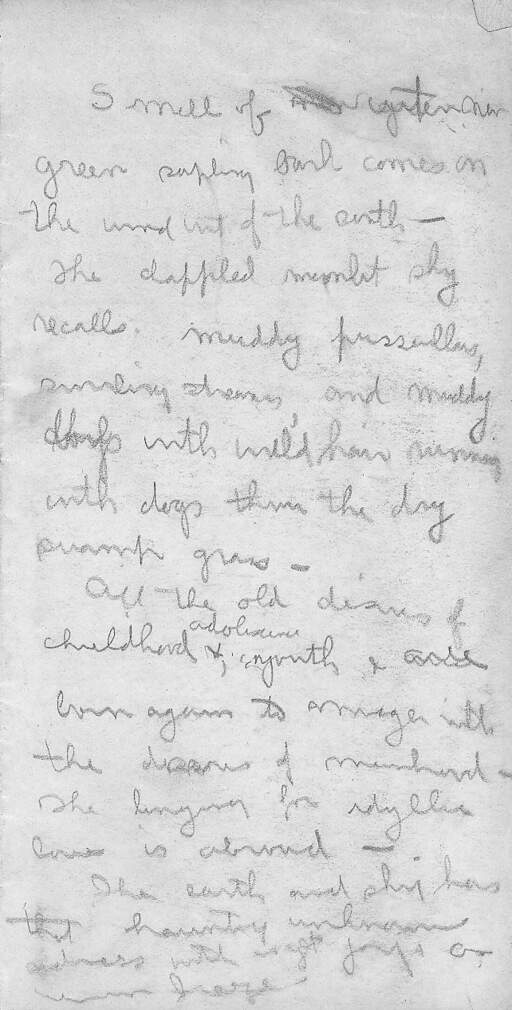 Smell of
green sapling bark comes on
the wind out of the south —
The dappled moonlit sky
recalls muddy pussywillows,
streams, and muddy
with wild hair running
with dogs thru the dry
swamp grass —
All the old desires of
childhood adolescence & youth &
born again to with
the desires of manhood —
The longing for idyllic
love is abroad —
The earth and sky has
haunting unknown
sadness with joys on